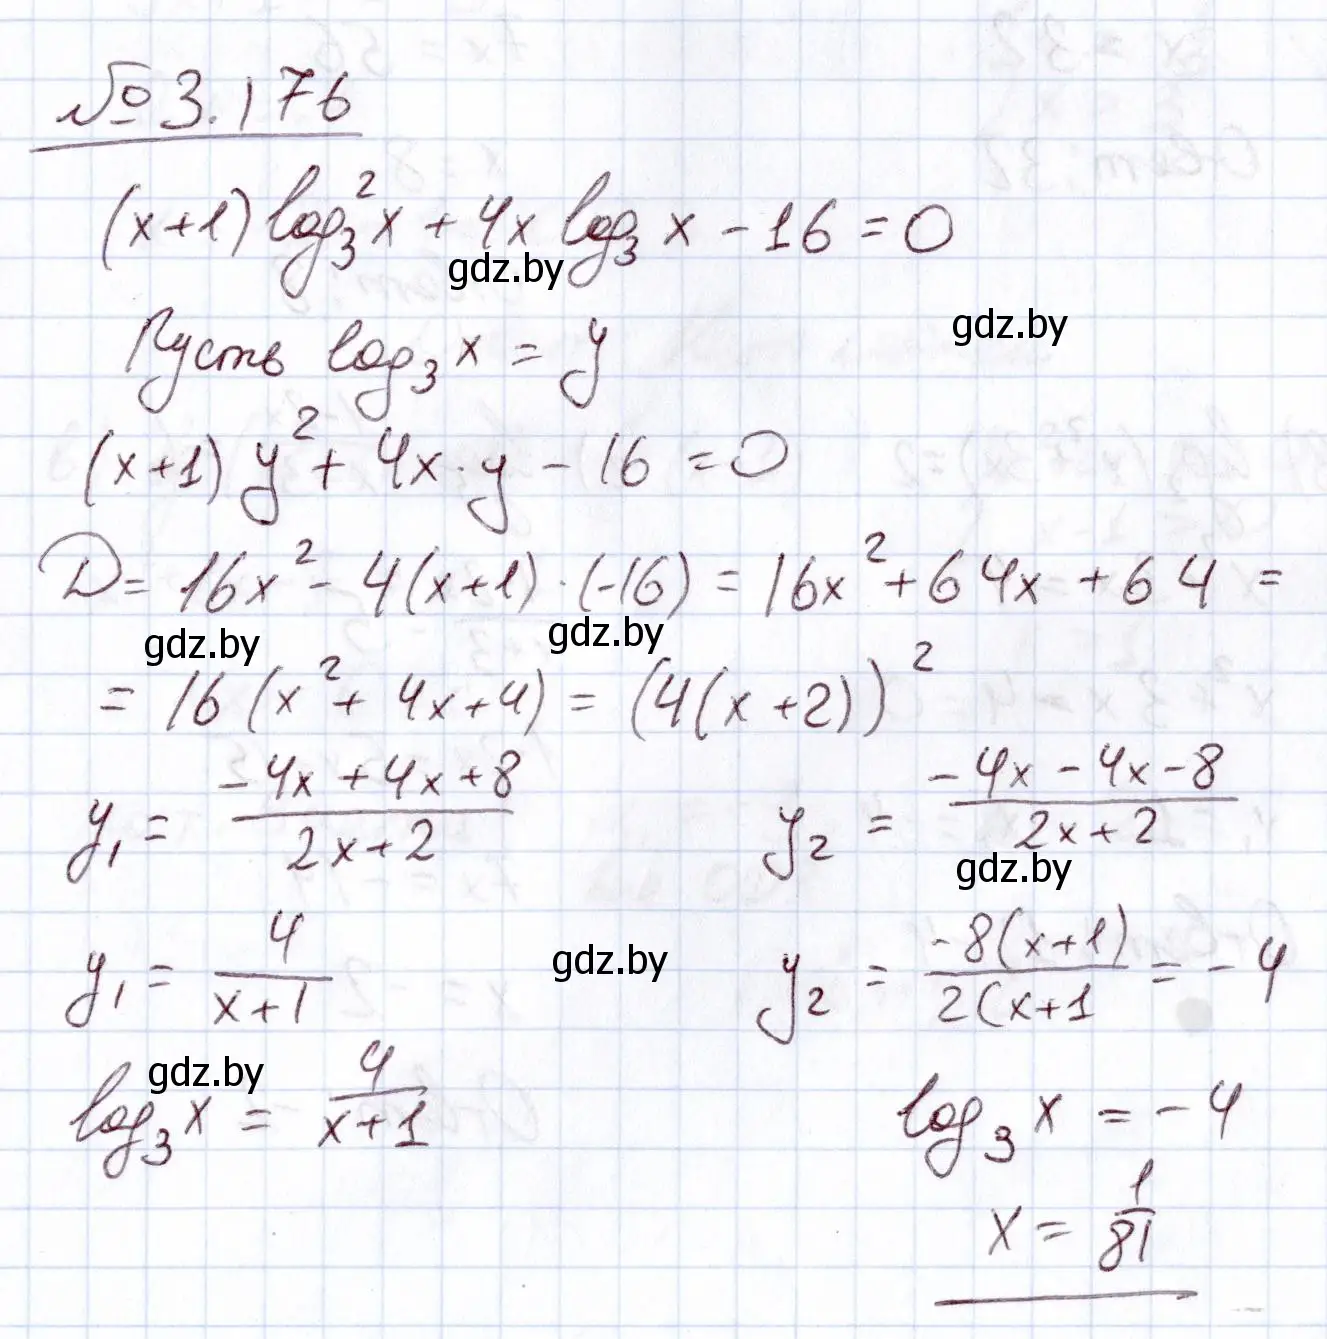 № 3.176
(x+1) log₃² x + 4x log₃ x - 16 = 0
gdz.by
gdz.by
Пусть log₃ x = y
(x+1) y² + 4x · y - 16 = 0
D = 16x² - 4(x+1) · (-16) = 16x² + 64x + 64 =
gdz.by gdz.by
= 16 (x² + 4x + 4) = (4(x+2))²
y₁ = (-4x + 4x + 8)/(2x+2) y₂ = (-4x - 4x - 8)/(2x+2)
gdz.by
y₁ = 4/(x+1) y₂ = -8(x+1)/2(x+1 = -4
gdz.by
gdz.by
log₃ x = 4/(x+1) log₃ x = -4
x = 1/81